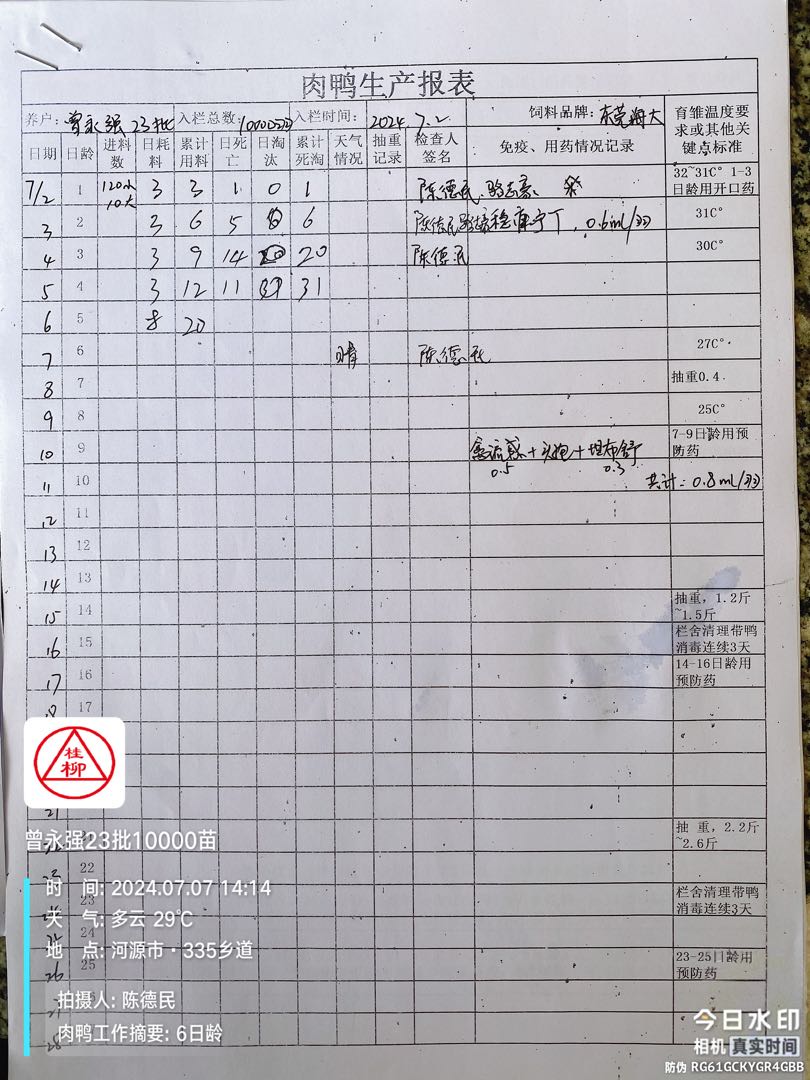 肉鸭生产报表
养户: 曾永强 23批 入栏总数: 10000羽 入栏时间: 2024.7.2 饲料品牌: 东莞海大 育雏温度要求或其他关键点标准
日期 日龄 进料数 日耗料 累计用料 日死亡 日淘汰 累计死淘 天气情况 抽重记录 检查人签名 免疫、用药情况记录
7/2 1 120小 10大 3 3 1 0 1 陈德民 32~31C° 1-3日龄用开口药
3 2 3 6 5 6 陈德民 0.6ml/羽 31C°
4 3 3 9 14 20 陈德民 30C°
5 4 3 12 11 31
6 5 8 20
7 6 晴 陈德民 27C°
8 7 抽重0.4
9 8 25C°
10 9 禽流感 + + 坦布舒 7-9日龄用预防药
0.5 0.3
11 10 共计: 0.8ml/羽
12 11
13 12
14 13
15 14 抽重, 1.2斤~1.5斤
16 15 栏舍清理带鸭消毒连续3天
17 16 14-16日龄用预防药
18 17
桂柳
21
抽 重, 2.2斤~2.6斤
曾永强23批10000苗
22
时 间: 2024.07.07 14:14
23 栏舍清理带鸭消毒连续3天
天 气: 多云 29℃
24
地 点: 河源市·335乡道
26 25 23-25日龄用预防药
拍摄人: 陈德民
肉鸭工作摘要: 6日龄
28
今日水印
相机 真实时间
防伪 RG61GCKYGR4GBB